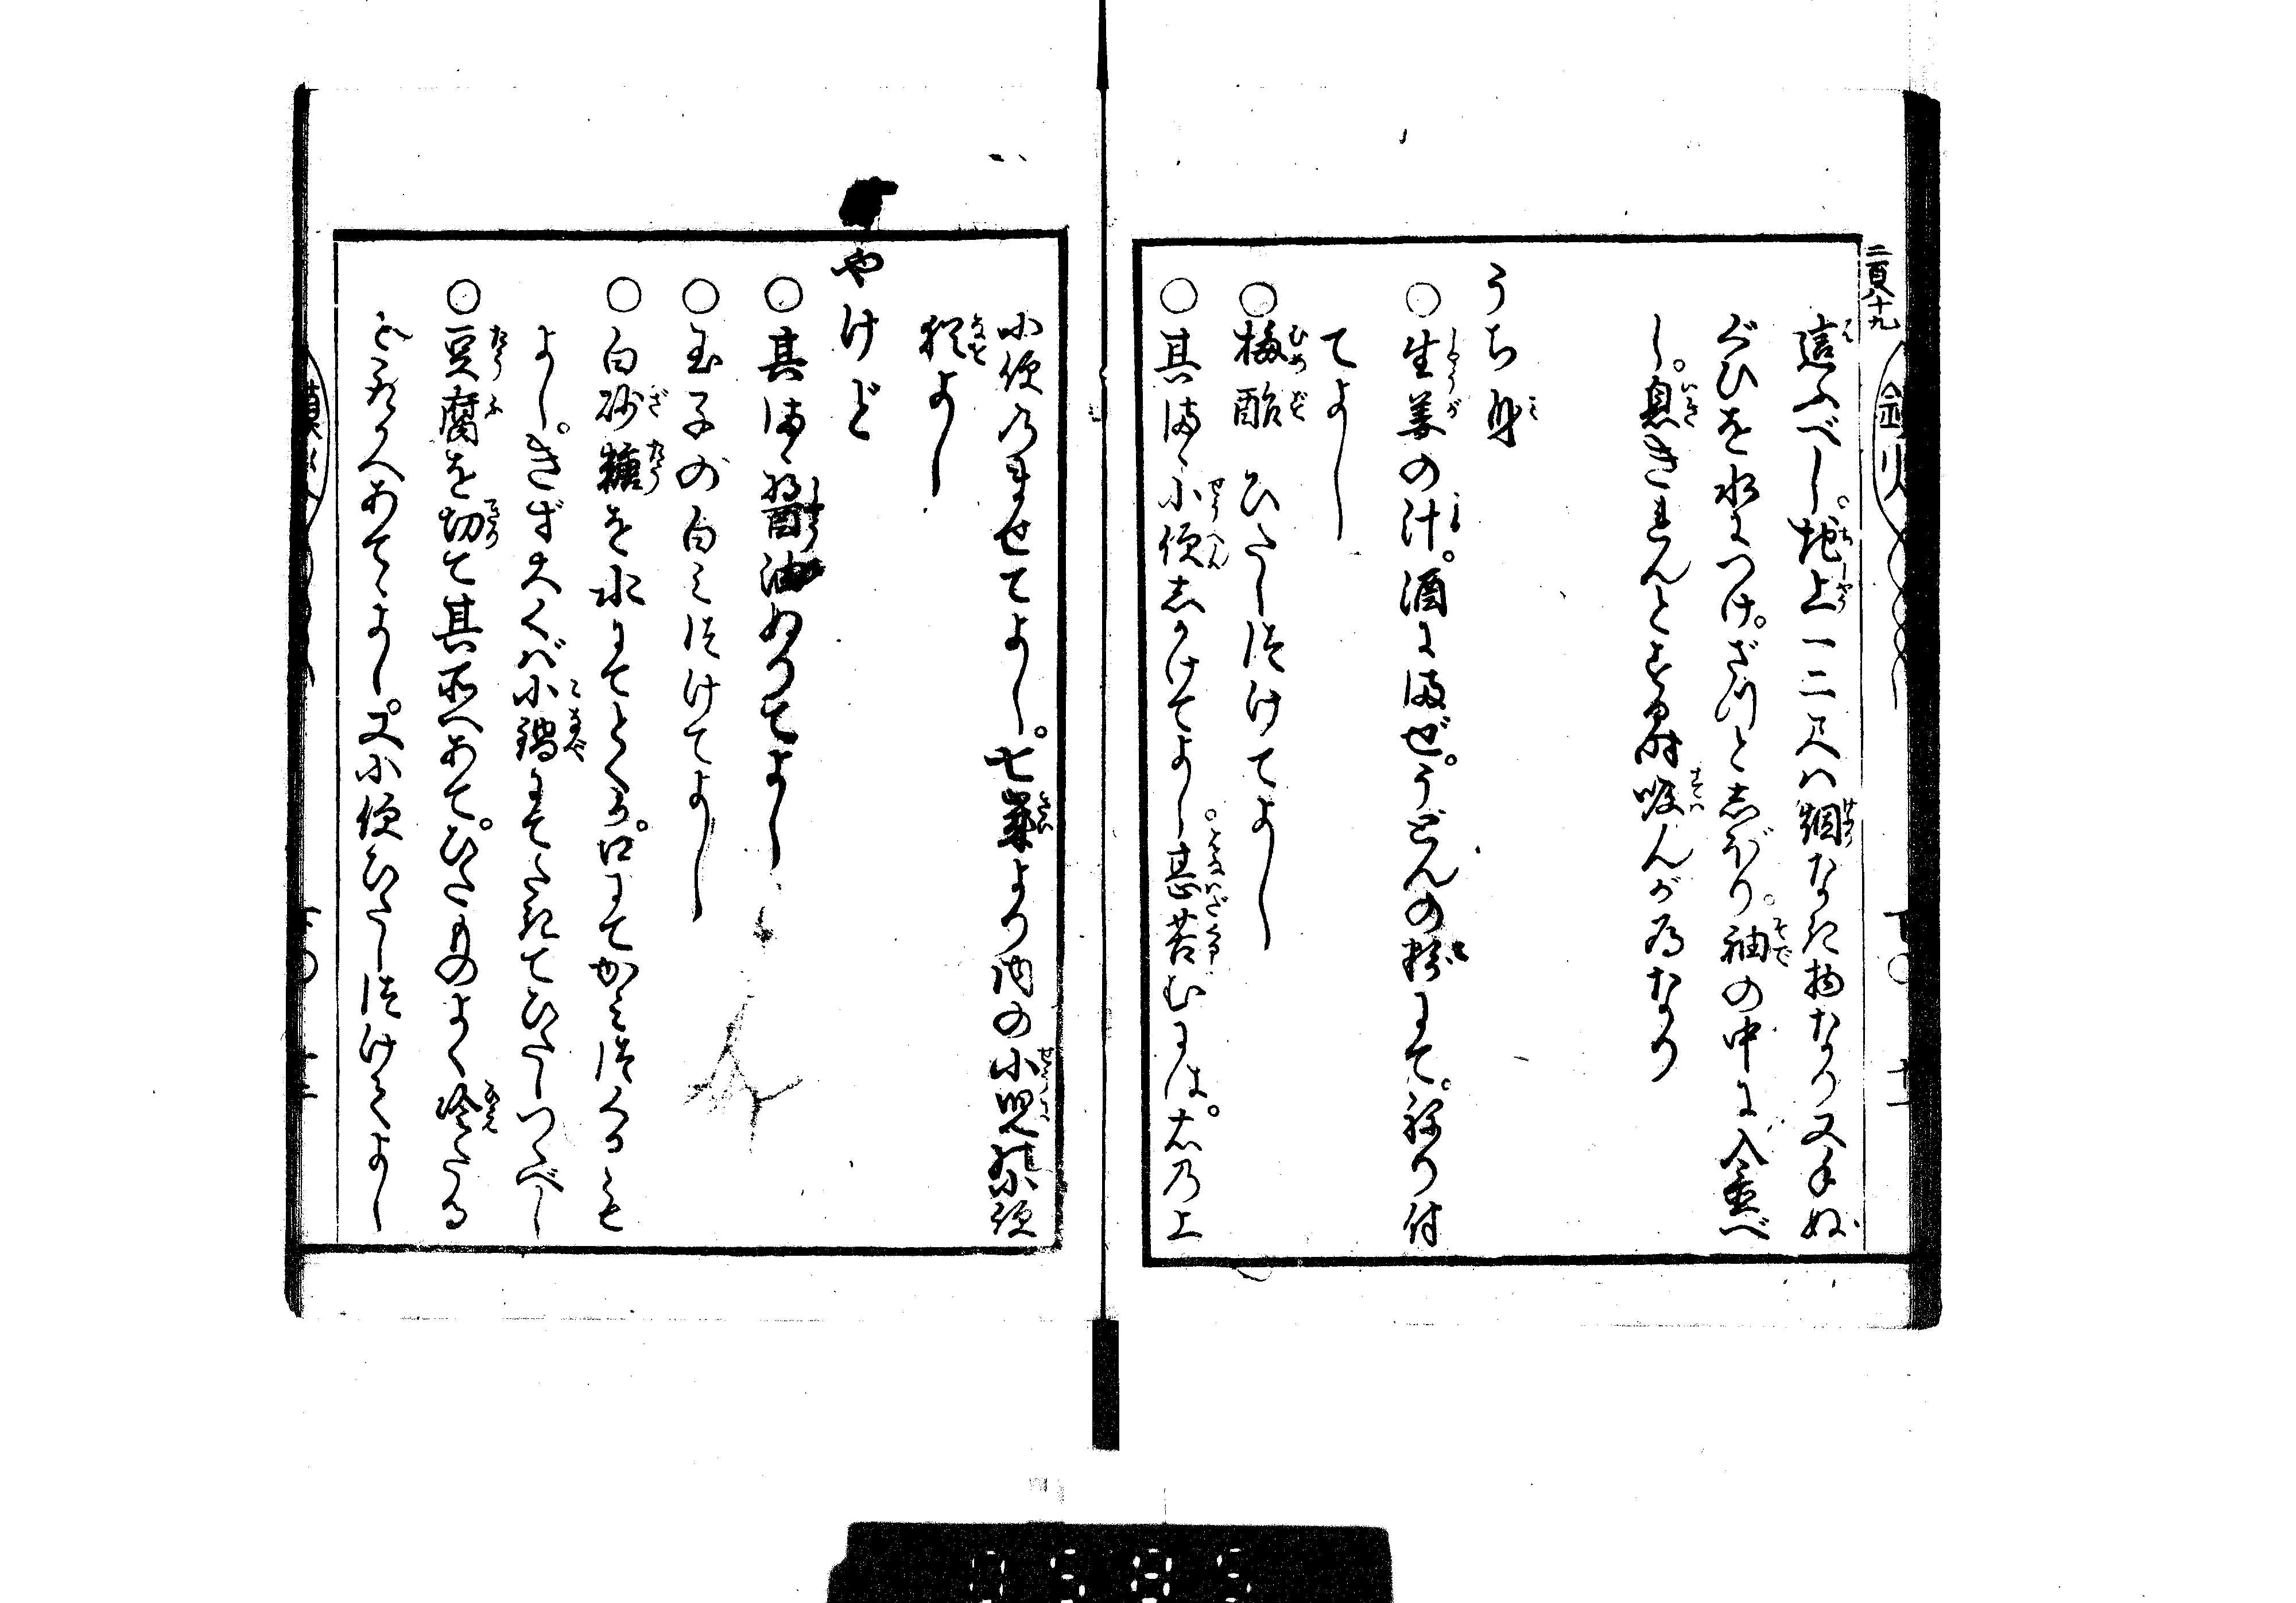 二百八十九
這ふべし。地上一二尺ハ烟なき物なり又手ぬ
ぐひを水につけ。ざつと志ぼり。袖の中に入置べ
し。息きれんとする時吸んが為なり
うち身
○生姜の汁。酒にまぜ。うどんの粉にて。ねり付
てよし
○梅酢ひたしつけてよし
○其まゝ小便志かけてよし。甚苦むには。右の上
小便のませてよし。七歳より内の小児
猶よし
やけど
○其まゝ醤油ぬりてよし
○玉子の白ミつけてよし
○白砂糖を水にてとくか。口にてかミつくるも
よし。きず大くバ小鍋にてたきてひたしつくべし
○豆腐を切て其所へあて。ひたものよく冷たる
とりかへあてゝよし。又小便ひたしつけてよし